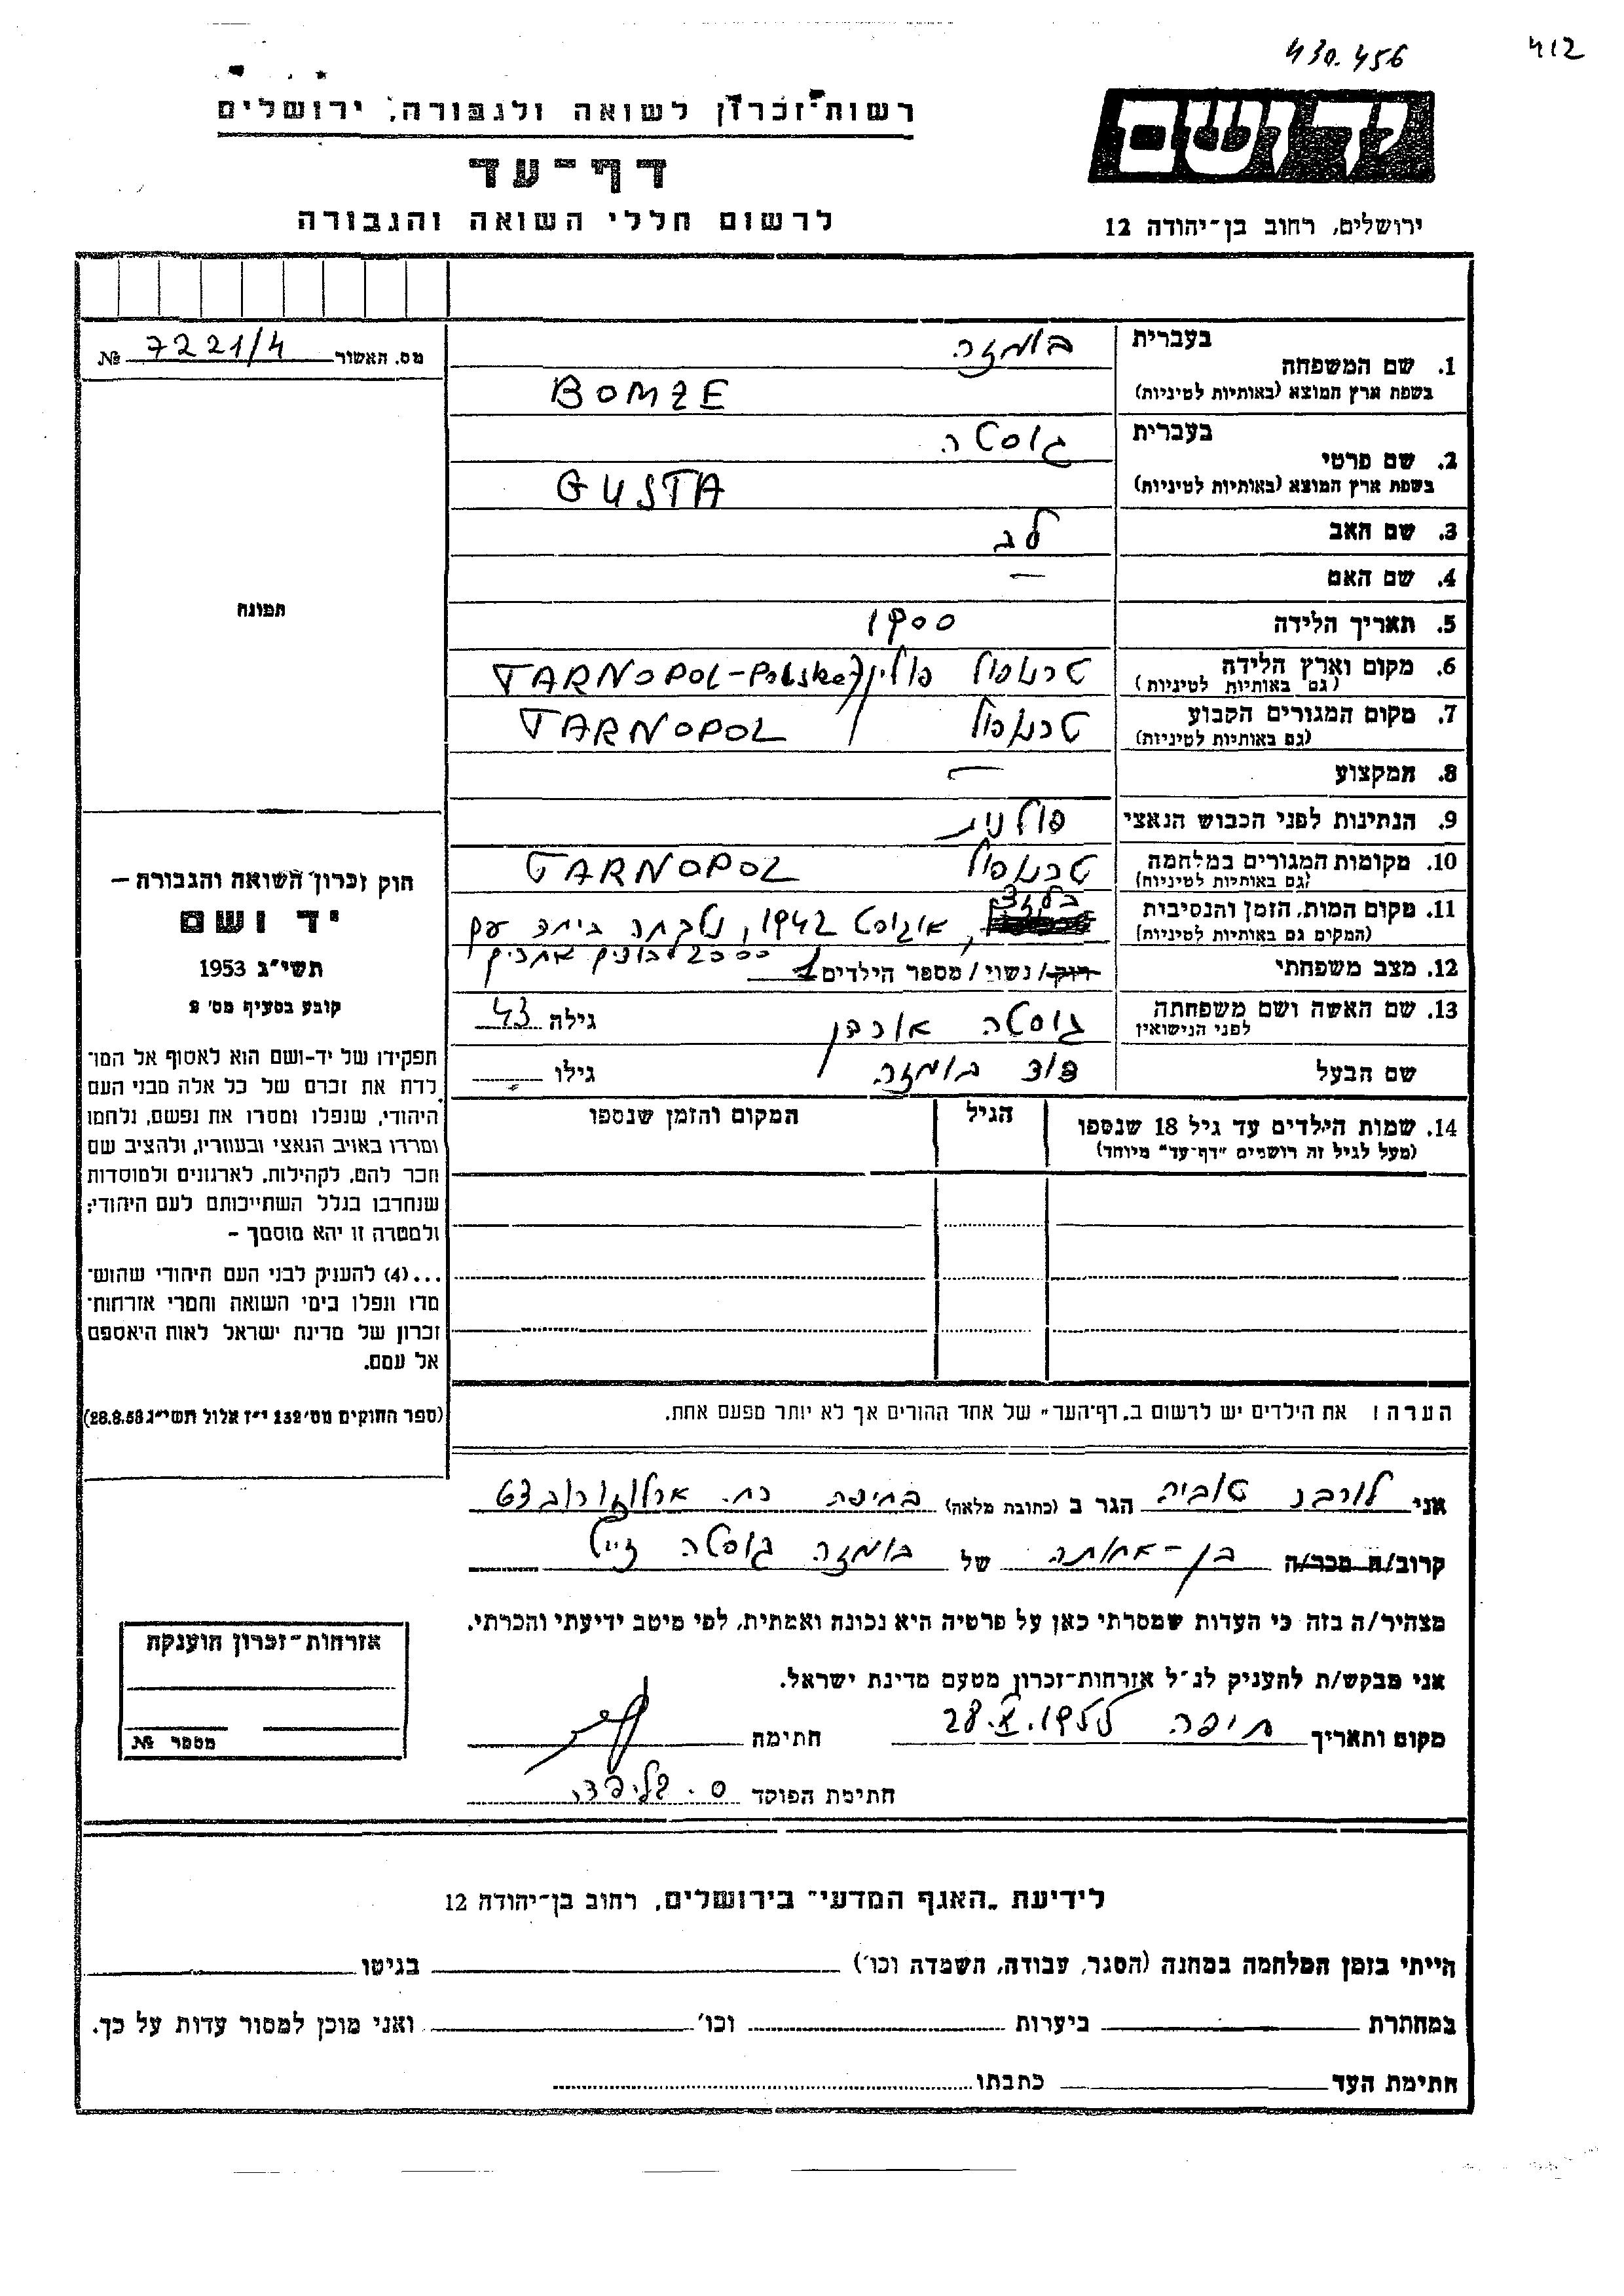 430.456
412
רשות־זכרון לשואה ולגבורה, ירושלים
דף־עד
לרשום חללי השואה והגבורה
ידושם
ירושלים, רחוב בן־יהודה 12
מס. האשור 7221/4 №
1. שם המשפחה
בעברית בומזה
בשפת ארץ המוצא (באותיות לטיניות) BOMZE
2. שם פרטי
בעברית גוסטה
בשפת ארץ המוצא (באותיות לטיניות) GUSTA
3. שם האב לב
4. שם האם —
5. תאריך הלידה 1900
6. מקום וארץ הלידה טרנופול פולין TARNOPOL-Polska
(גם באותיות לטיניות)
7. מקום המגורים הקבוע טרנופול TARNOPOL
(גם באותיות לטיניות)
8. המקצוע —
9. הנתינות לפני הכבוש הנאצי פולנית
10. מקומות המגורים במלחמה טרנופול TARNOPOL
(גם באותיות לטיניות)
11. מקום המות, הזמן והנסיבות בלזץ, אוגוסט 1942, נלקחה ביחד עם
(המקום גם באותיות לטיניות) 2000 אחרים
12. מצב משפחתי רוק/ נשוי / מספר הילדים 1
13. שם האשה ושם משפחתה גוסטה גילה 43
לפני הנישואין
שם הבעל בומזה גילו
14. שמות הילדים עד גיל 18 שנספו הגיל המקום והזמן שנספו
(מעל לגיל זה רושמים "דף־עד" מיוחד)
הערה: את הילדים יש לרשום ב„דף־העד" של אחד ההורים אך לא יותר מפעם אחת.
תמונה
חוק זכרון השואה והגבורה —
יד ושם
תשי"ג 1953
קובע בסעיף מס' 2
תפקידו של יד־ושם הוא לאסוף אל המו־
לדת את זכרם של כל אלה מבני העם
היהודי, שנפלו ומסרו את נפשם, נלחמו
ומרדו באויב הנאצי ובעוזריו, ולהציב שם
וזכר להם, לקהילות, לארגונים ולמוסדות
שנחרבו בגלל השתייכותם לעם היהודי;
ולמטרה זו יהא מוסמך —
...(4) להעניק לבני העם היהודי שהוש־
מדו ונפלו בימי השואה והמרי אזרחות־
זכרון של מדינת ישראל לאות היאספם
אל עמם.
(ספר החוקים מס' 132 י"ז אלול תשי"ג 28.8.53)
אני טוביה הגר ב (כתובת מלאה) בחיפה רח. ארלוזורוב
קרוב/ה מכר/ה בן-אחותה של בומזה גוסטה ז"ל
מצהיר/ה בזה כי העדות שמסרתי כאן על פרטיה היא נכונה ואמתית, לפי מיטב ידיעתי והכרתי.
אני מבקש/ת להעניק לנ"ל אזרחות־זכרון מטעם מדינת ישראל.
מקום ותאריך חיפה 28.X.1955 חתימה
חתימת הפוקד
אזרחות־זכרון הוענקה
מספר №
לידיעת „האגף המדעי" בירושלים, רחוב בן־יהודה 12
הייתי בזמן המלחמה במחנה (הסגר, עבודה, השמדה וכו') בגיטו
במחתרת ביערות וכו' ואני מוכן למסור עדות על כך.
חתימת העד כתבתו